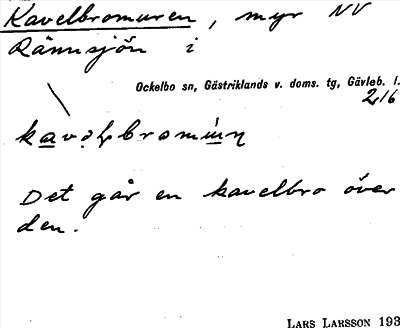 Kavelbromuren, myr NV
Rännsjön i
Ockelbo sn, Gästriklands v. doms. tg, Gävleb. l.
216
Det går en kavelbro över
den.
LARS LARSSON 193